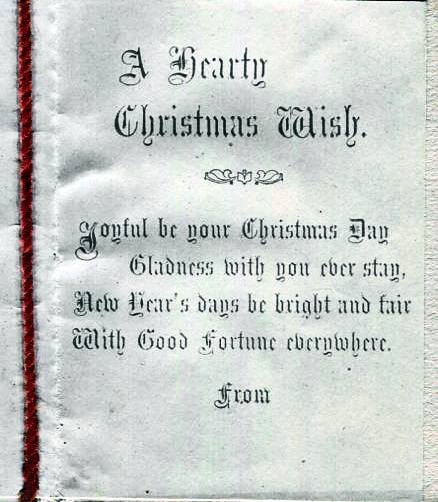 A Hearty
Christmas Wish.
Joyful be your Christmas Day
Gladness with you ever stay,
New Year's days be bright and fair
With Good Fortune everywhere.
From